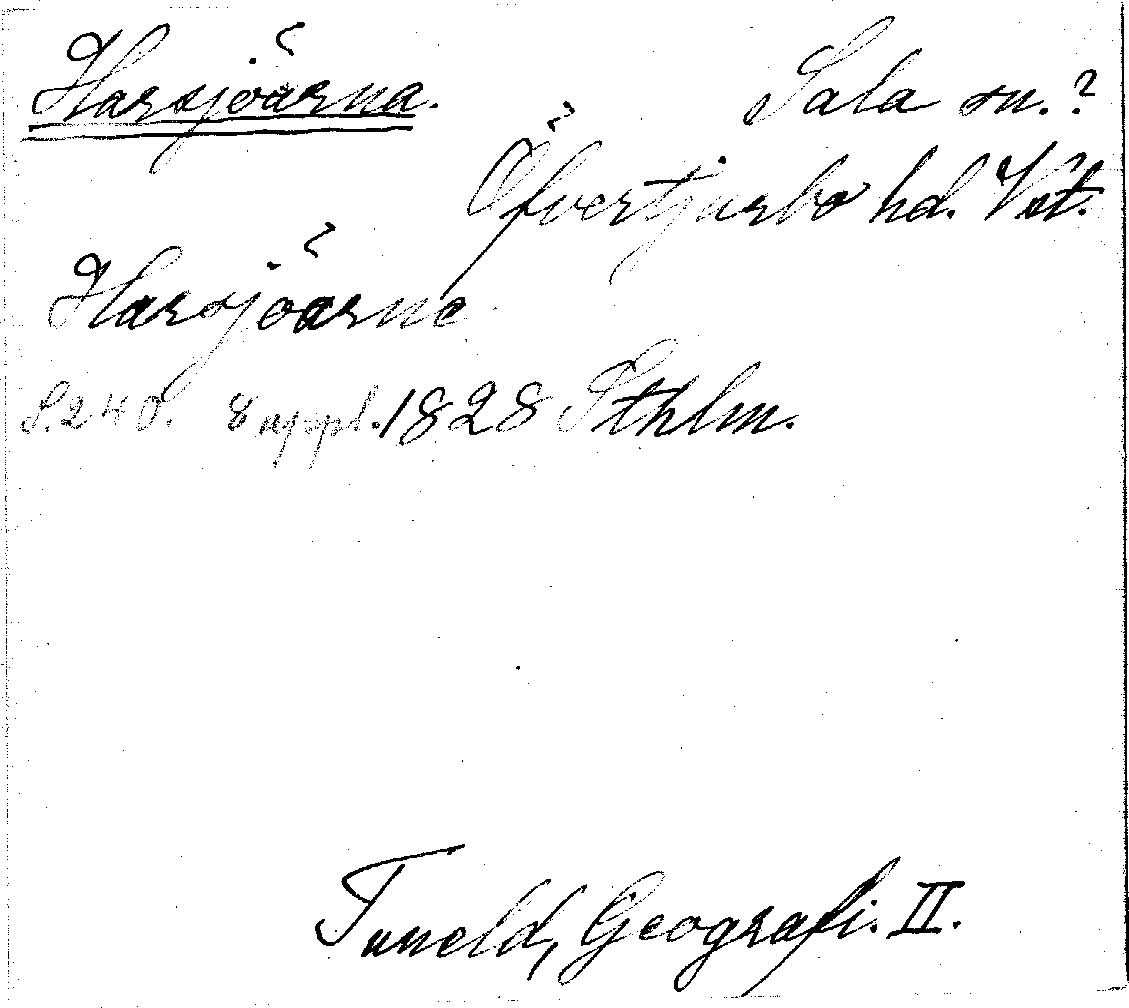 Harsjöärna.
Sala sn.?
Öfvertjurbo hd. Vst.
Harsjöärne
S. 240. 8 uppl. 1828 Sthlm.
Tuneld, Geografi. II.